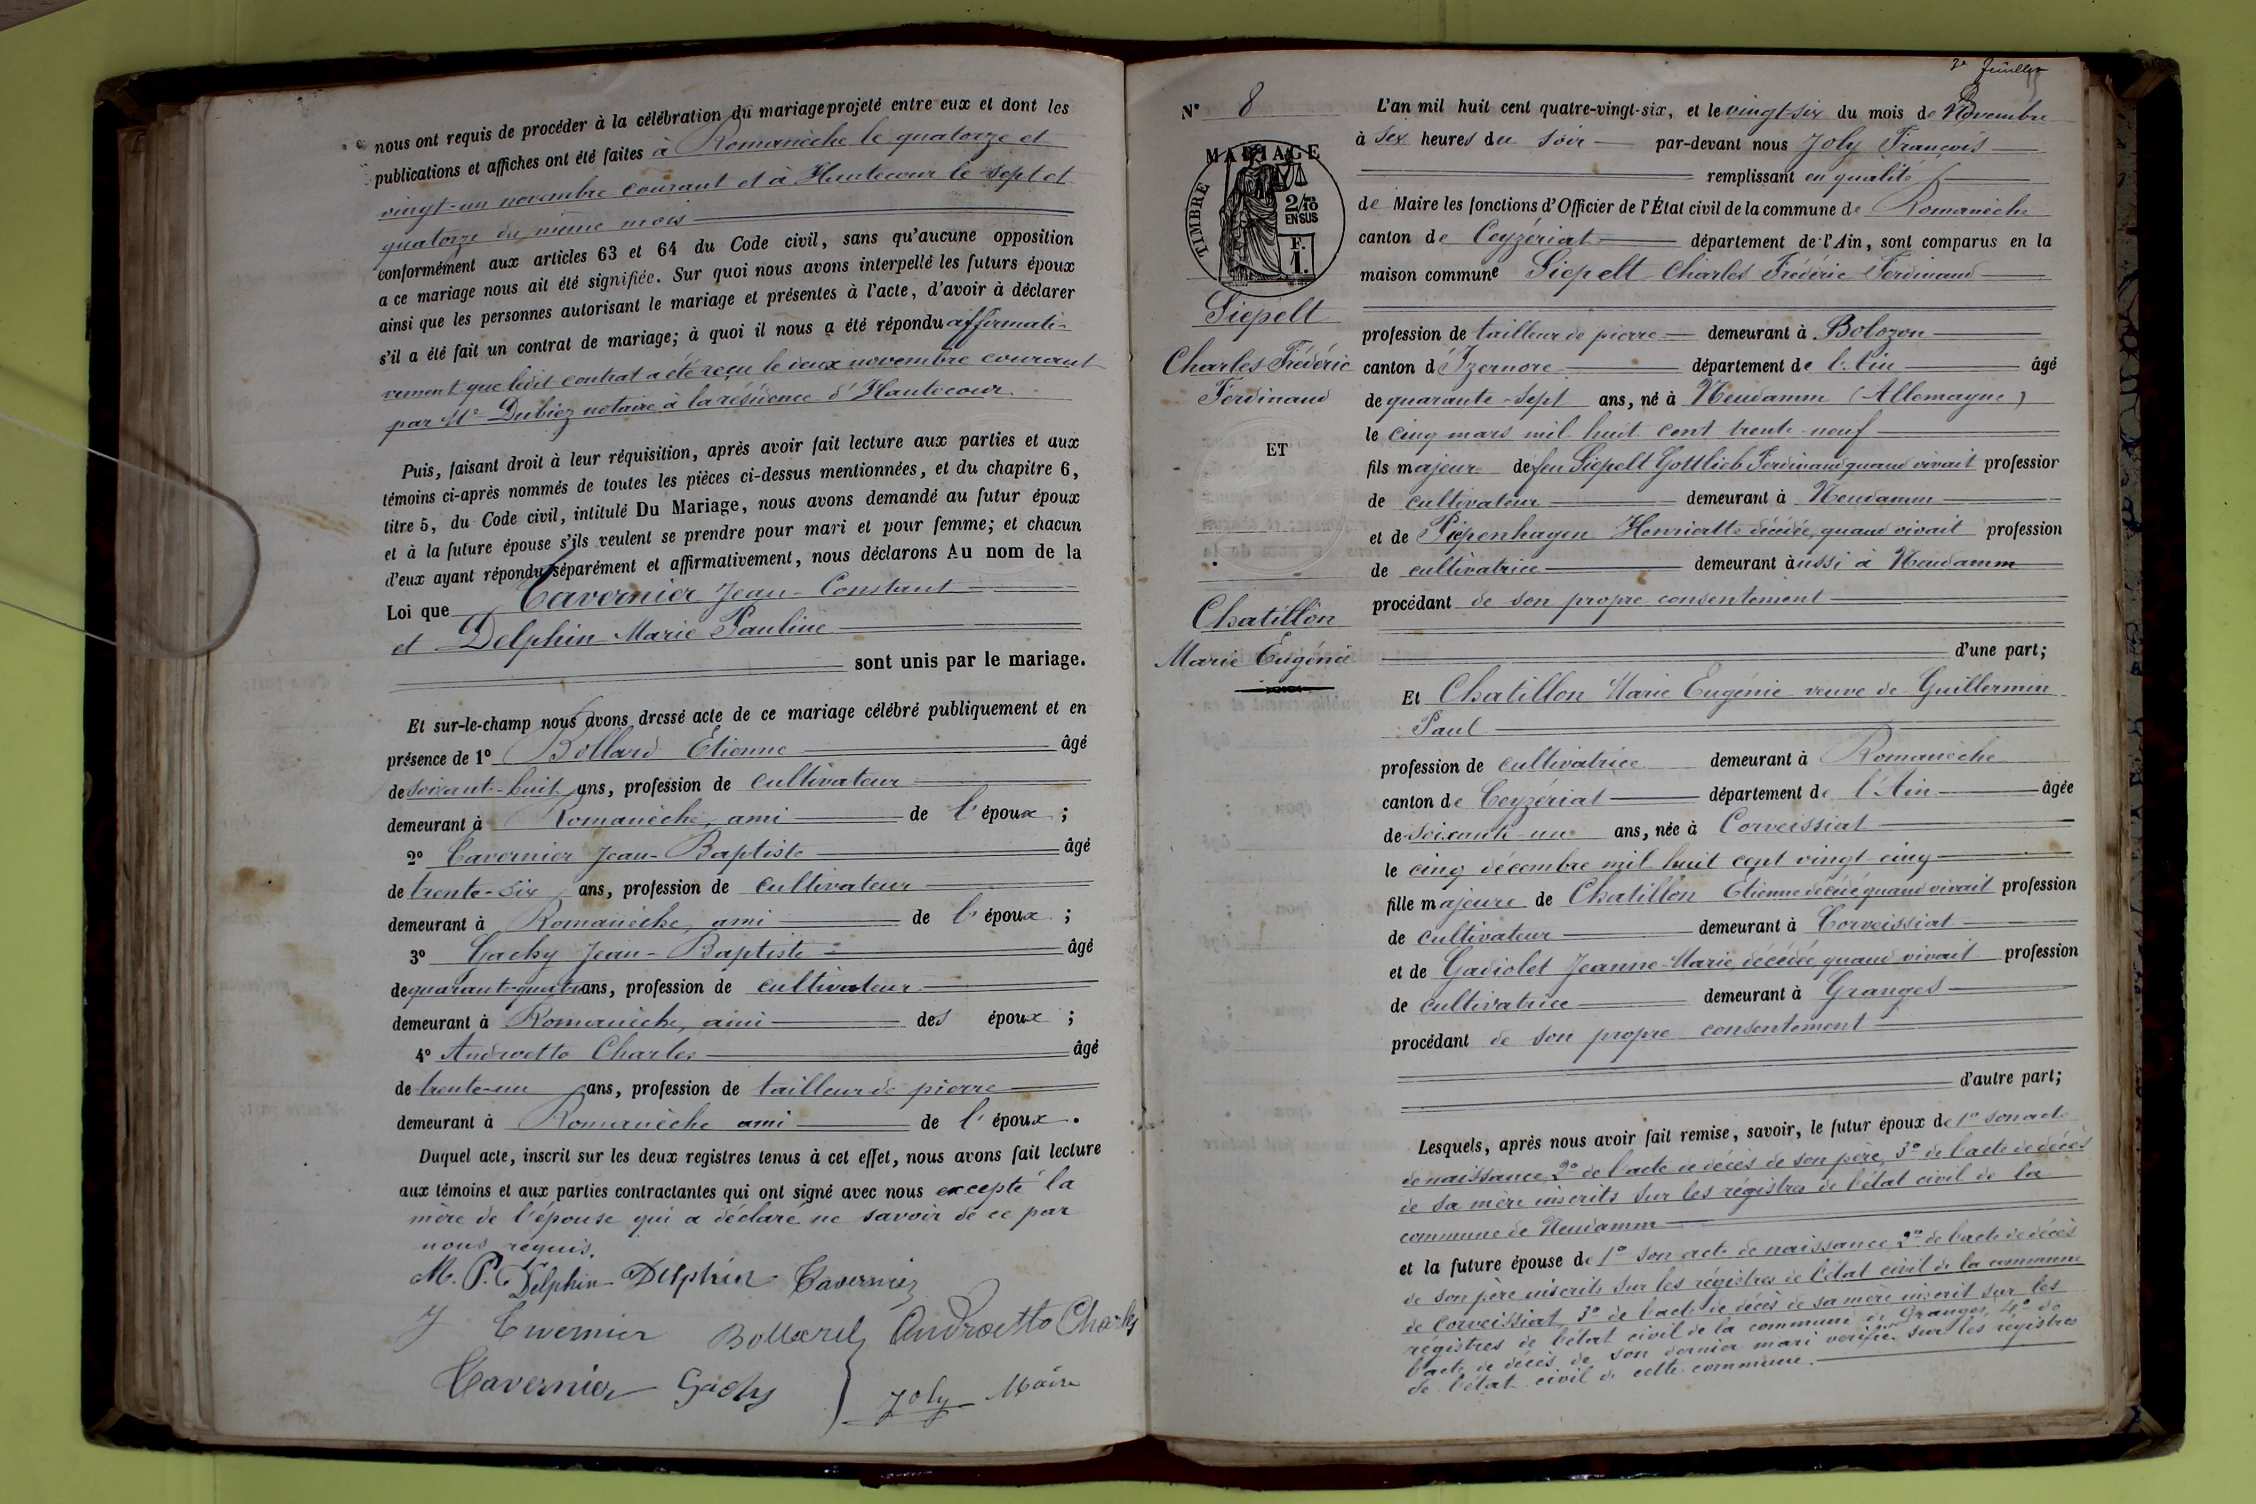 nous ont requis de procéder à la célébration du mariage projeté entre eux et dont les
publications et affiches ont été faites à Romanèche le quatorze et
vingt-un novembre courant et à Hautecour le sept et
quatorze du même mois
conformément aux articles 63 et 64 du Code civil, sans qu'aucune opposition
a ce mariage nous ait été signifiée. Sur quoi nous avons interpellé les futurs époux
ainsi que les personnes autorisant le mariage et présentes à l'acte, d'avoir à déclarer
s'il a été fait un contrat de mariage; à quoi il nous a été répondu affirmati-
vement que ledit contrat a été reçu le deux novembre courant
par Me Dubiez notaire à la résidence d'Hautecour
Puis, faisant droit à leur réquisition, après avoir fait lecture aux parties et aux
témoins ci-après nommés de toutes les pièces ci-dessus mentionnées, et du chapitre 6,
titre 5, du Code civil, intitulé Du Mariage, nous avons demandé au futur époux
et à la future épouse s'ils veulent se prendre pour mari et pour femme; et chacun
d'eux ayant répondu séparément et affirmativement, nous déclarons Au nom de la
Loi que Tavernier Jean-Constant
et Delphin Marie Pauline
sont unis par le mariage.
Et sur-le-champ nous avons dressé acte de ce mariage célébré publiquement et en
présence de 1º Bollard Etienne âgé
de soixante-huit ans, profession de cultivateur
demeurant à Romanèche, ami de l'époux ;
2º Tavernier Jean-Baptiste âgé
de trente-six ans, profession de cultivateur
demeurant à Romanèche, ami de l'époux ;
3º Gachy Jean-Baptiste âgé
de quarante-quatre ans, profession de cultivateur
demeurant à Romanèche, ami des époux ;
4º Androetto Charles âgé
de trente-un ans, profession de tailleur de pierre
demeurant à Romanèche ami de l'époux.
Duquel acte, inscrit sur les deux registres tenus à cet effet, nous avons fait lecture
aux témoins et aux parties contractantes qui ont signé avec nous excepté la
mère de l'épouse qui a déclaré ne savoir de ce par
nous requis.
M. P. Delphin Delphin Tavernier
J Tavernier Bollard Androetto Charles
Tavernier Gachy Joly Maire
Nº 8
MARIAGE
TIMBRE
2/10
EN SUS
F.
1.
Siepelt
Charles Frédéric
Ferdinand
ET
Chatillon
Marie Eugénie
L'an mil huit cent quatre-vingt-six, et le vingt-six du mois de Novembre
à six heures du soir par-devant nous Joly François
remplissant en qualité
de Maire les fonctions d'Officier de l'État civil de la commune de Romanèche
canton de Ceyzériat département de l'Ain, sont comparus en la
maison commune Siepelt Charles Frédéric Ferdinand
profession de tailleur de pierre demeurant à Bolozon
canton d'Izernore département de l'Ain âgé
de quarante-sept ans, né à Neudamm (Allemagne)
le cinq mars mil huit cent trente neuf
fils majeur de feu Siepelt Gottlieb Ferdinand quand vivait profession
de cultivateur demeurant à Neudamm
et de Piepenhagen Henriette décédée, quand vivait profession
de cultivatrice demeurant aussi à Neudamm
procédant de son propre consentement
d'une part;
Et Chatillon Marie Eugénie veuve de Guillermin
Paul
profession de cultivatrice demeurant à Romanèche
canton de Ceyzériat département de l'Ain âgée
de soixante-un ans, née à Corveissiat
le cinq décembre mil huit cent vingt-cinq
fille majeure de Chatillon Etienne décédé quand vivait profession
de cultivateur demeurant à Corveissiat
et de Gadiolet Jeanne-Marie, décédée quand vivait profession
de cultivatrice demeurant à Granges
procédant de son propre consentement
d'autre part;
Lesquels, après nous avoir fait remise, savoir, le futur époux de 1º son acte
de naissance, 2º de l'acte de décès de son père, 3º de l'acte de décès
de sa mère inscrits sur les régistres de l'état civil de la
commune de Neudamm
et la future épouse de 1º son acte de naissance, 2º de l'acte de décès
de son père inscrits sur les régistres de l'état civil de la commune
de Corveissiat, 3º de l'acte de décès de sa mère inscrit sur les
régistres de l'état civil de la commune de Granges, 4º de
l'acte de décès de son dernier mari vérifié sur les régistres
de l'état civil de cette commune.